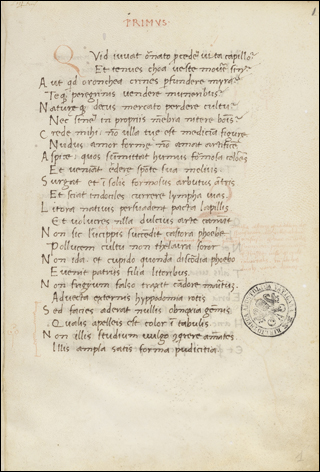 PRIMVS
Quid iuuat ornato p̄cedē uita capillo
Et tenues choa ueste mouē sin⁹
Aut qd oronthea crines pfundere myrra
Teq; peregrinis uendere muneribus
Natureq; decus mercato perdere cultu
Nec sinē in propriis mēbra nitere bonis
Crede mihi nō ulla tue est medicina figure
Nudus amor forme nō amat artificē
Aspice quos summittat humus formosa colores
Et ueniāt edere spōte sua melius
Surgat et ī solis formosius arbutus ātris
Et sciat indociles currere lympha uias
Litora natiuis persuadent picta lapillis
Et uolucres nulla dulcius arte canūt
Non sic lucippis succedit castora phoebe
Pollucem cultu non thelaira soror
Non ida et cupido quondā discordia phoebo
Euenit patriis filia litoribus
Non frigium falso traxit cādore maritus
Aduecta externis hyppodomia rotis
Sed facies aderat nullis obnoxia gemis
Qualis apelleis est color ī tabulis
Non illis studium uulgo ꝯqrere amātes
Illis ampla satis forma pudicitia